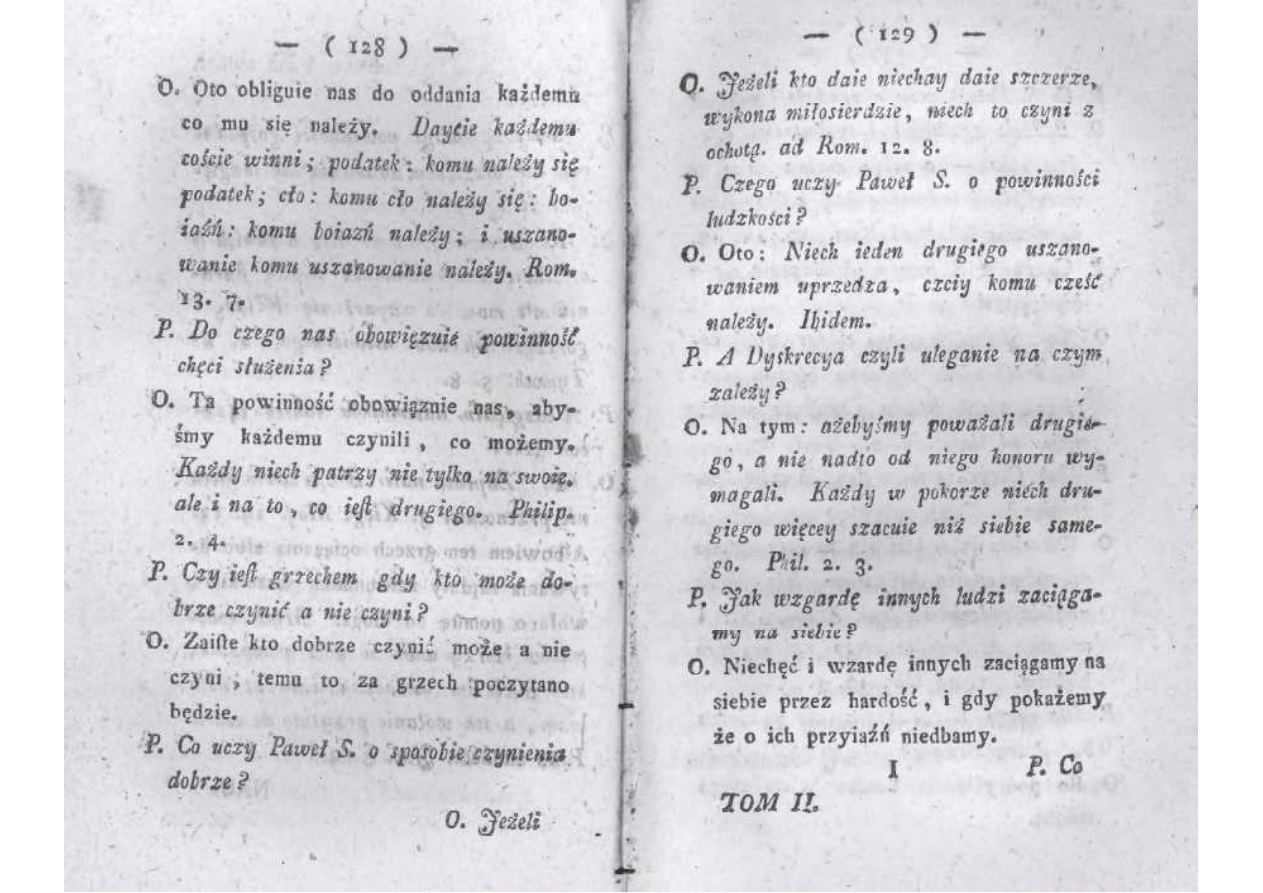 — ( 128 ) —
O. Oto obliguie nas do oddania każdemu
co mu się należy. Daycie każdemu
coście winni; podatek: komu należy się
podatek; cło: komu cło należy się: bo-
iaźń: komu boiaźń należy; i uszano-
wanie komu uszanowanie należy. Rom.
13. 7.
P. Do czego nas obowięzuie powinność
chęci służenia?
O. Ta powinność obowiąznie nas, aby-
śmy każdemu czynili, co możemy.
Każdy niech patrzy nie tylko na swoie,
ale i na to, co ieſt drugiego. Philip.
2. 4.
P. Czy ieſt grzechem gdy kto może do-
brze czynić a nie czyni?
O. Zaiſte kto dobrze czynić może a nie
czyni; temu to za grzech poczytano
będzie.
P. Co uczy Paweł S. o sposobie czynienia
dobrze?
O. Jeżeli
— ( 129 ) —
O. Jeżeli kto daie niechay daie szczerze,
wykona miłosierdzie, niech to czyni z
ochotą. ad Rom. 12. 8.
P. Czego uczy Paweł S. o powinności
ludzkości?
O. Oto: Niech ieden drugiego uszano-
waniem uprzedza, czciy komu cześć
należy. Ibidem.
P. A Dyskrecya czyli uleganie na czym
zależy?
O. Na tym: ażebyśmy poważali drugie-
go, a nie nadto od niego honoru wy-
magali. Każdy w pokorze niéch dru-
giego więcey szacuie niż siebie same-
go. Phil. 2. 3.
P. Jak wzgardę innych ludzi zaciąga-
my na siebie?
O. Niechęć i wzardę innych zaciągamy na
siebie przez hardość, i gdy pokażemy
że o ich przyiaźń niedbamy.
I P. Co
TOM II.